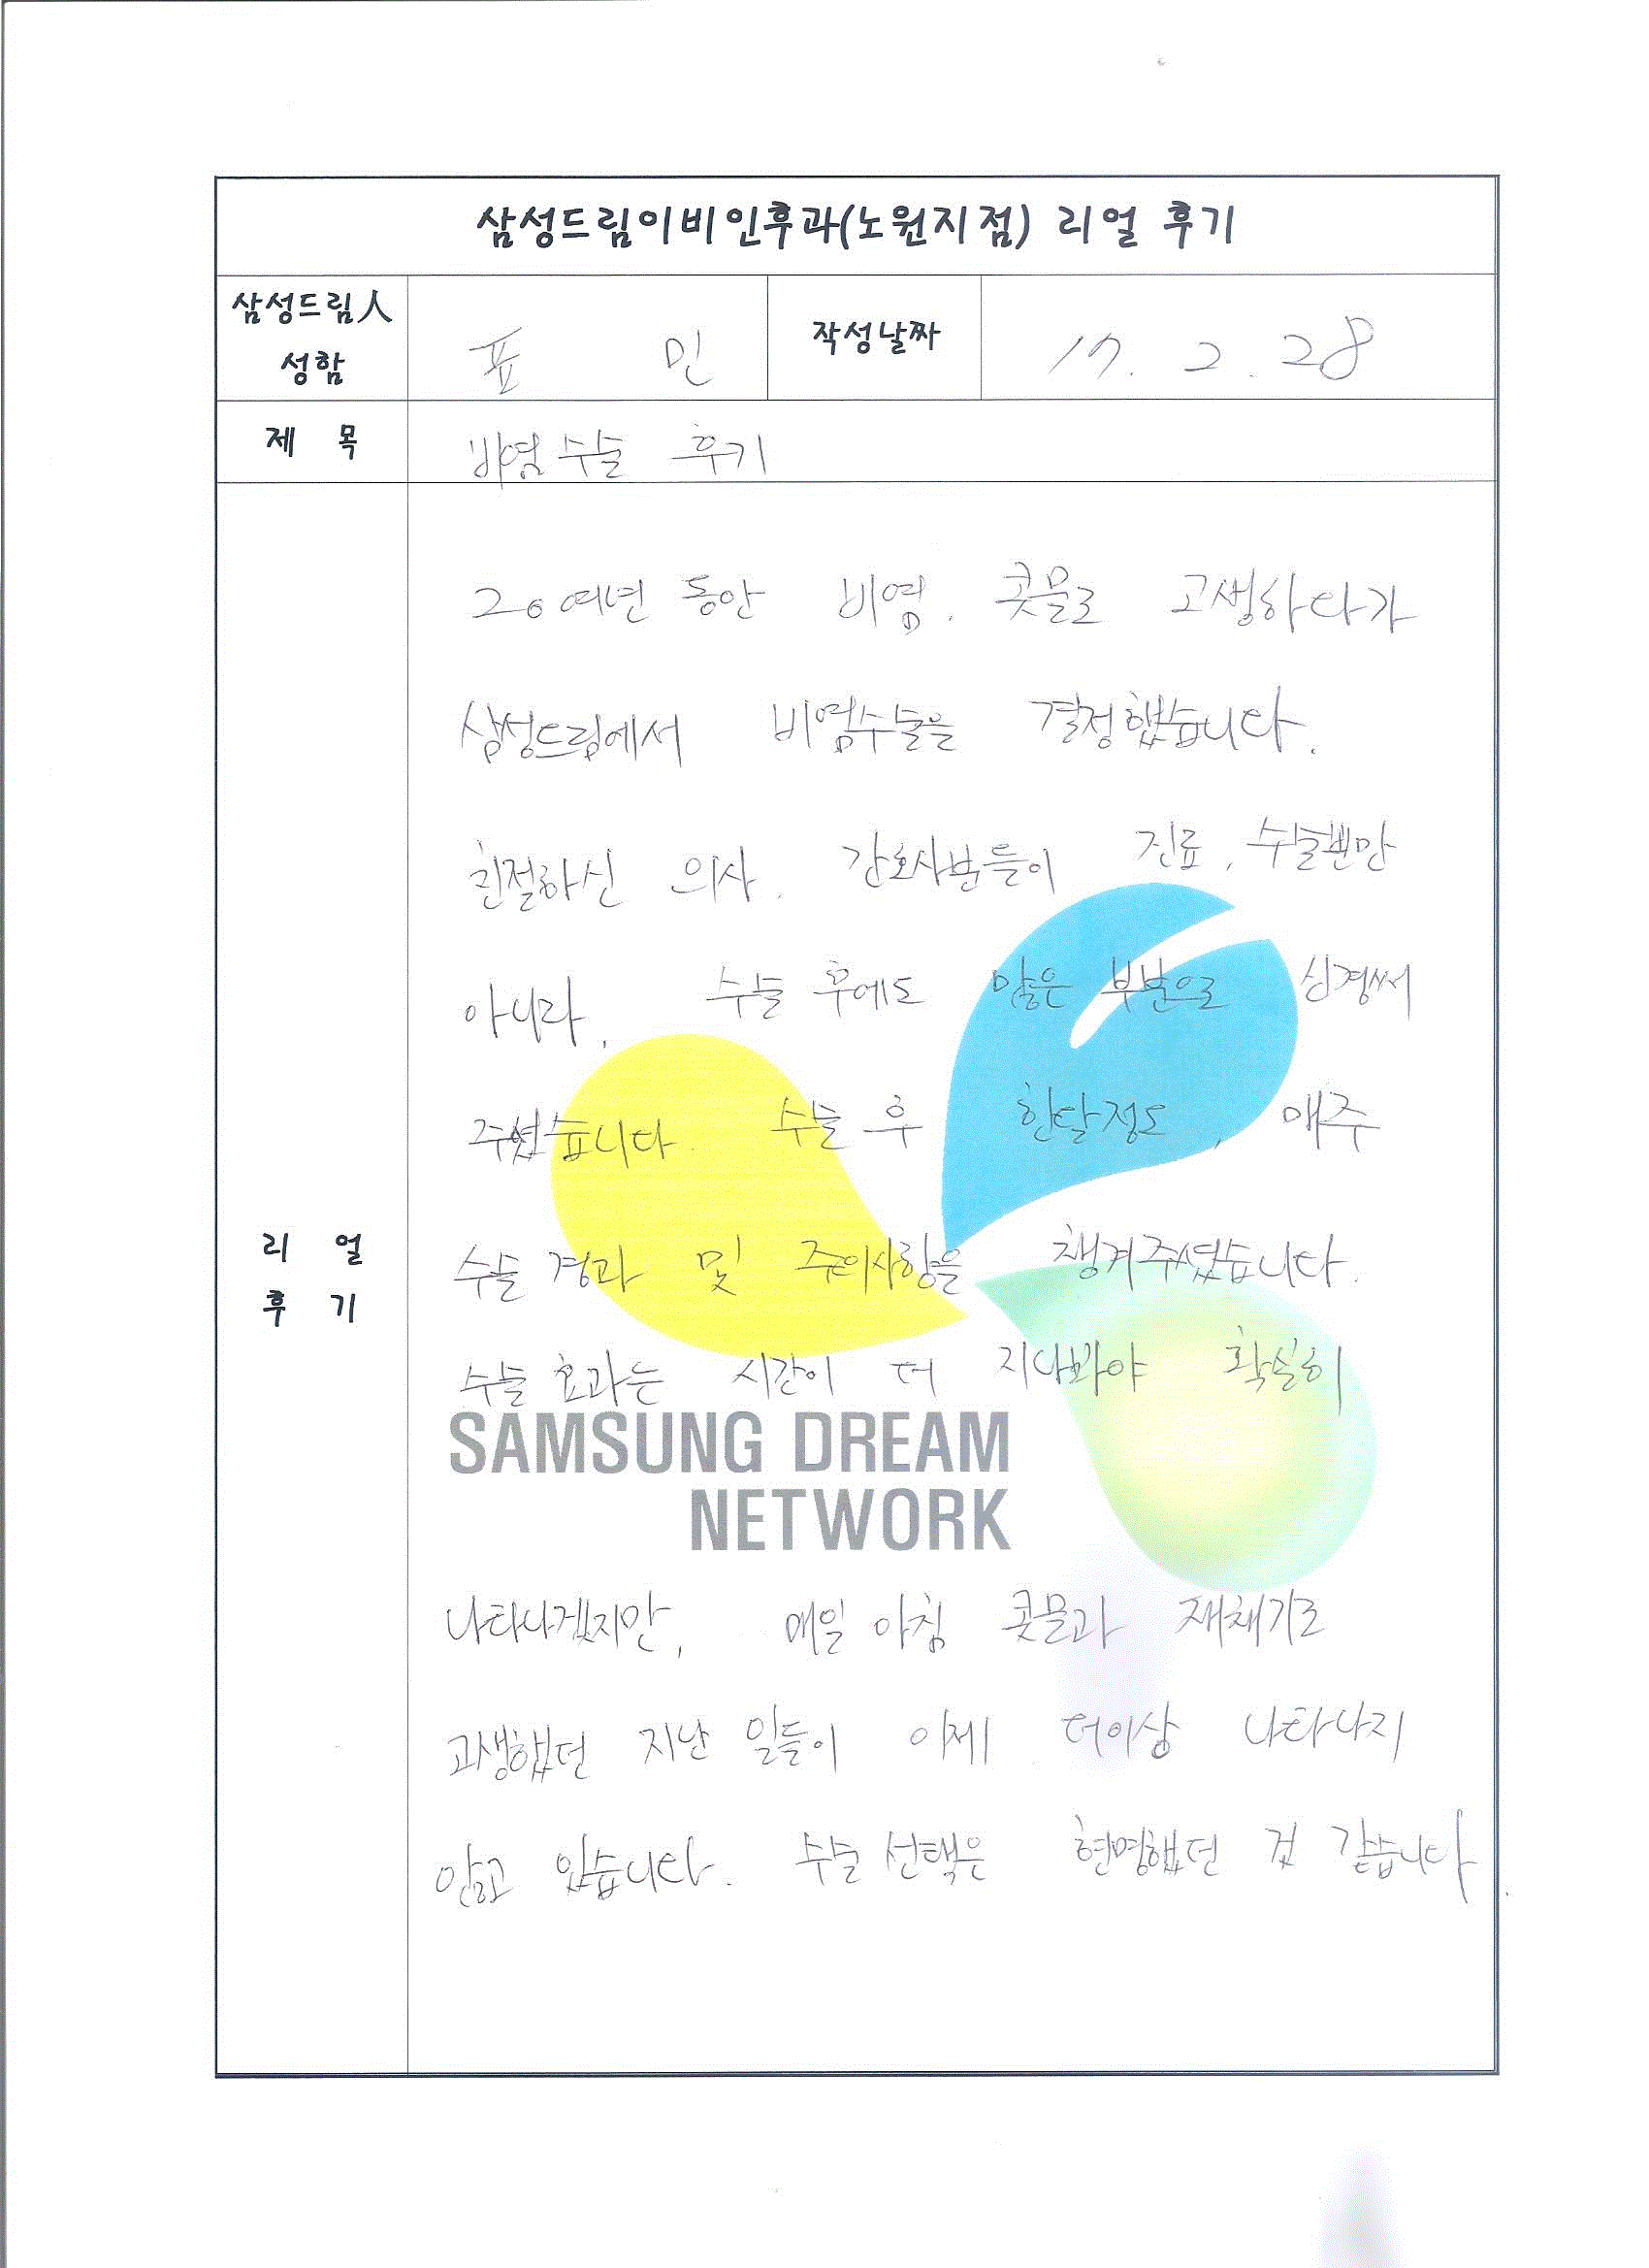 삼성드림이비인후과(노원지점) 리얼 후기
삼성드림人
성함
표 민
작성날짜
17. 2. 28
제 목
비염수술 후기
20여년 동안 비염. 콧물로 고생하다가
삼성드림에서 비염수술을 결정했습니다.
친절하신 의사. 간호사분들이 진료, 수술뿐만
아니라, 수술 후에도 많은 부분으로 신경써
주셨습니다. 수술 후 한달정도, 매주
리 얼
후 기
수술 경과 및 주의사항을 챙겨주셨습니다.
수술 효과는 시간이 더 지나봐야 확실히
SAMSUNG DREAM
NETWORK
나타나겠지만, 매일 아침 콧물과 재채기로
고생했던 지난 일들이 이제 더이상 나타나지
않고 있습니다. 수술 선택은 현명했던 것 같습니다.